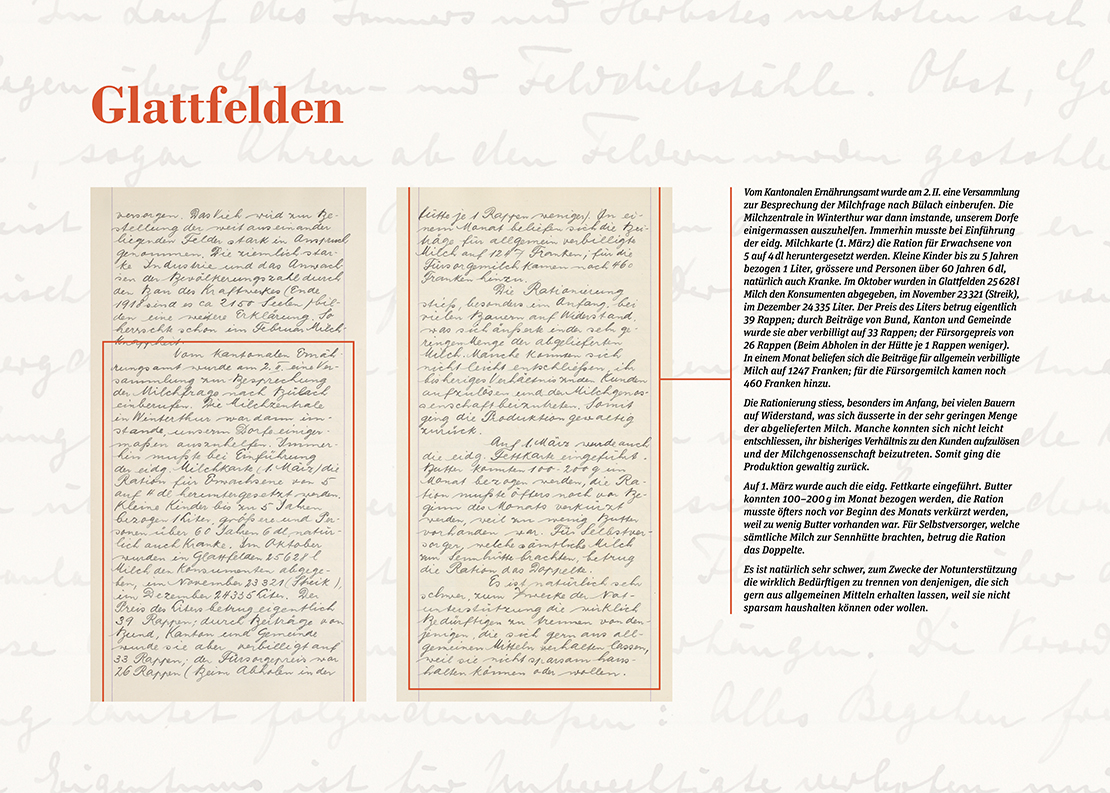 Im Lauf des Sommers und Herbstes mehrten sich
über Garten- und Felddiebstähle. Obst,
, sogar Ähren ab den Feldern wurden
Glattfelden
versorgen. Das lieh wird zur Be-
stellung der weit auseinander
liegenden Felder stark in Anspruch
genommen. Die ziemlich star-
ke Industrie und das Anwach
sen der Bevölkerungszahl durch
den Bau des Kraftwerkes (Ende
1918 sind es ca 2150 Seelen) bil-
den eine weitere Erklärung. So
herrschte schon im Februar Milch-
knappheit.
Vom kantonalen Ernäh-
rungsamt wurde am 2. II. eine Ver-
sammlung zur Besprechung
der Milchfrage nach Bülach
einberufen. Die Milchzentrale
in Winterthur war dann im-
stande, unserm Dorfe einiger-
maßen auszuhelfen. Immer-
hin mußte bei Einführung
der eidg. Milchkarte (1. März) die
Ration für Erwachsene von 5
auf 4 dl heruntergesetzt werden.
Kleine Kinder bis zu 5 Jahren
bezogen 1 Liter, größere und Per-
sonen über 60 Jahren 6 dl, natür-
lich auch Kranke. Im Oktober
wurden in Glattfelden 25628 l
Milch den Konsumenten abgege-
ben, im November 23321 (Streik),
im Dezember 24335 Liter. Der
Preis des Liters betrug eigentlich
39 Rappen; durch Beiträge von
Bund, Kanton und Gemeinde
wurde sie aber verbilligt auf
33 Rappen; der Fürsorgepreis war
26 Rappen (Beim Abholen in der
Hütte je 1 Rappen weniger). In ei-
nem Monat beliefen sich die Bei-
träge für allgemein verbilligte
Milch auf 1247 Franken; für die
Fürsorgemilch kamen noch 460
Franken hinzu.
Die Rationierung
stieß, besonders im Anfang, bei
vielen Bauern auf Widerstand,
was sich äußerte in der sehr ge-
ringen Menge der abgelieferten
Milch. Manche konnten sich
nicht leicht entschließen, ihr
bisheriges Verhältnis zu den Kunden
aufzulösen und der Milchgenos-
senschaft beizutreten. Somit
ging die Produktion gewaltig
zurück.
Auf 1. März wurde auch
die eidg. Fettkarte eingeführt.
Butter konnten 100-200 g im
Monat bezogen werden, die Ra-
tion mußte öfters noch vor Be-
ginn des Monats verkürzt
werden, weil zu wenig Butter
vorhanden war. Für Selbstver-
sorger, welche sämtliche Milch
zur Sennhütte brachten, betrug
die Ration das Doppelte.
Es ist natürlich sehr
schwer, zum Zwecke der Not-
unterstützung die wirklich
Bedürftigen zu trennen von den-
jenigen, die sich gern aus all-
gemeinen Mitteln erhalten lassen,
weil sie nicht sparsam haus-
halten können oder wollen.
Vom Kantonalen Ernährungsamt wurde am 2. II. eine Versammlung
zur Besprechung der Milchfrage nach Bülach einberufen. Die
Milchzentrale in Winterthur war dann imstande, unserem Dorfe
einigermassen auszuhelfen. Immerhin musste bei Einführung
der eidg. Milchkarte (1. März) die Ration für Erwachsene von
5 auf 4 dl heruntergesetzt werden. Kleine Kinder bis zu 5 Jahren
bezogen 1 Liter, grössere und Personen über 60 Jahren 6 dl,
natürlich auch Kranke. Im Oktober wurden in Glattfelden 25 628 l
Milch den Konsumenten abgegeben, im November 23 321 (Streik),
im Dezember 24 335 Liter. Der Preis des Liters betrug eigentlich
39 Rappen; durch Beiträge von Bund, Kanton und Gemeinde
wurde sie aber verbilligt auf 33 Rappen; der Fürsorgepreis von
26 Rappen (Beim Abholen in der Hütte je 1 Rappen weniger).
In einem Monat beliefen sich die Beiträge für allgemein verbilligte
Milch auf 1247 Franken; für die Fürsorgemilch kamen noch
460 Franken hinzu.
Die Rationierung stiess, besonders im Anfang, bei vielen Bauern
auf Widerstand, was sich äusserte in der sehr geringen Menge
der abgelieferten Milch. Manche konnten sich nicht leicht
entschliessen, ihr bisheriges Verhältnis zu den Kunden aufzulösen
und der Milchgenossenschaft beizutreten. Somit ging die
Produktion gewaltig zurück.
Auf 1. März wurde auch die eidg. Fettkarte eingeführt. Butter
konnten 100–200 g im Monat bezogen werden, die Ration
musste öfters noch vor Beginn des Monats verkürzt werden,
weil zu wenig Butter vorhanden war. Für Selbstversorger, welche
sämtliche Milch zur Sennhütte brachten, betrug die Ration
das Doppelte.
Es ist natürlich sehr schwer, zum Zwecke der Notunterstützung
die wirklich Bedürftigen zu trennen von denjenigen, die sich
gern aus allgemeinen Mitteln erhalten lassen, weil sie nicht
sparsam haushalten können oder wollen.
lautet folgendermaßen: Alles Begehen
Eigentums ist für Unberechtigte verboten